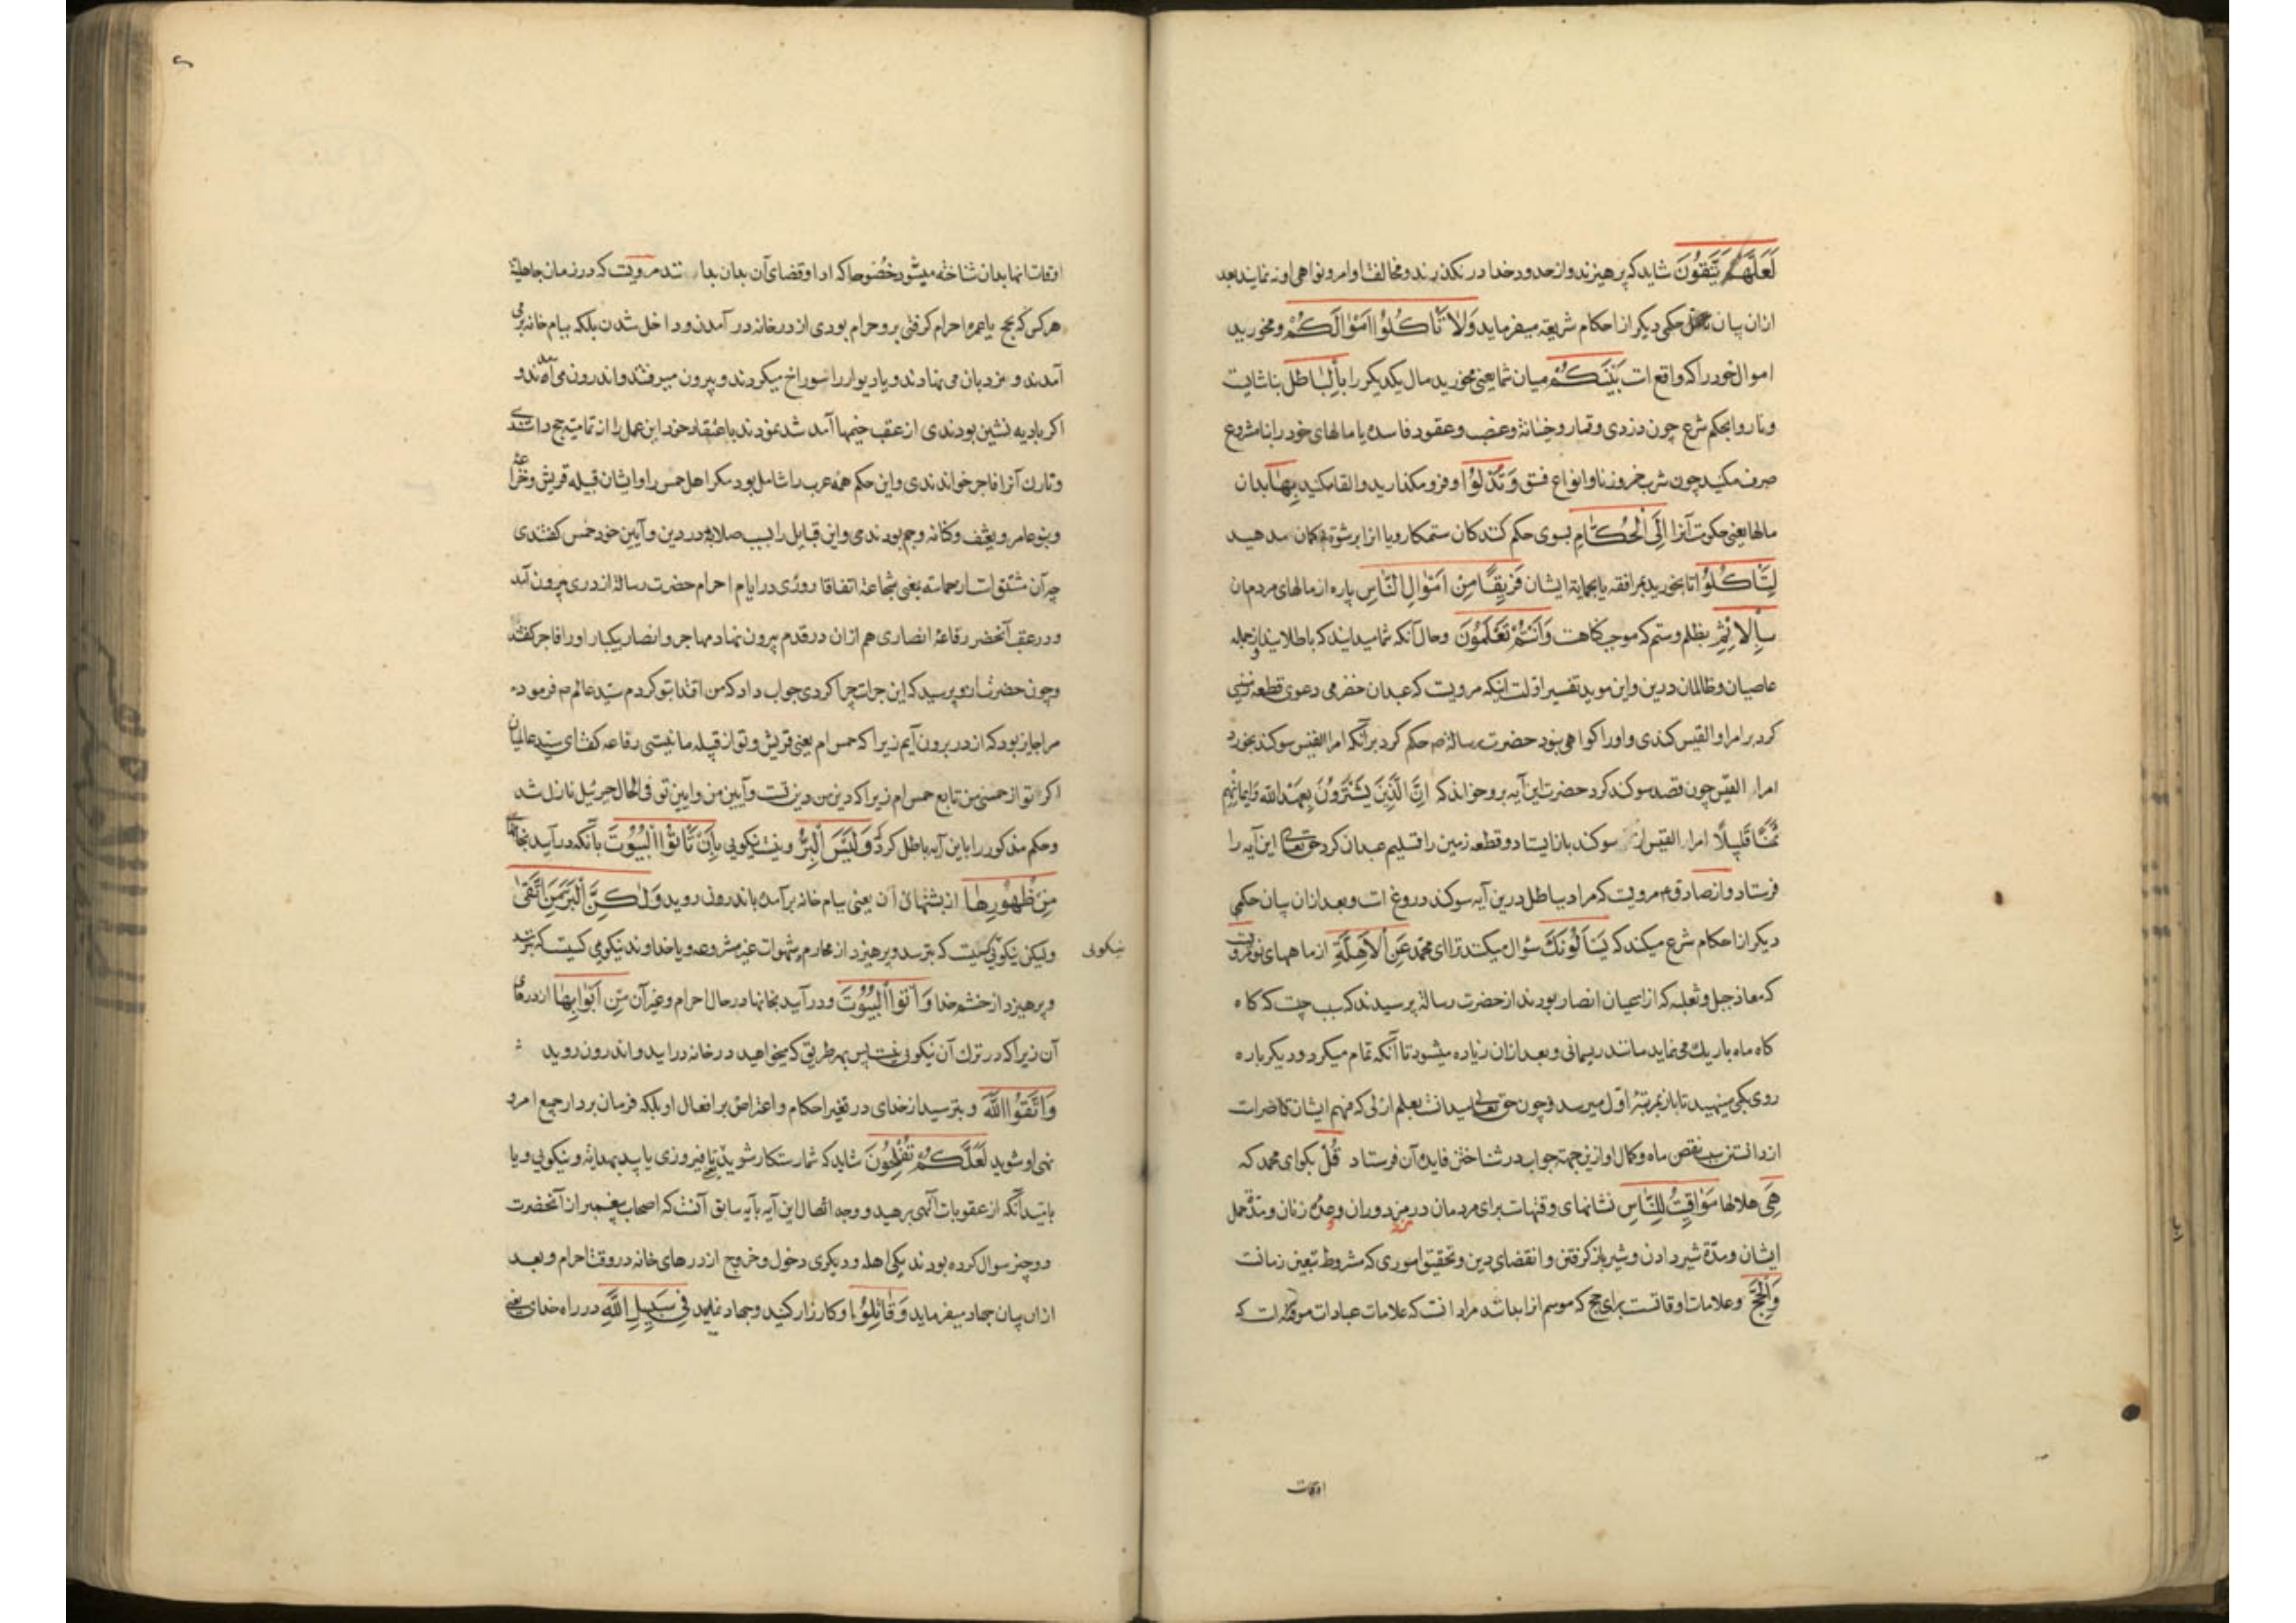 لَعَلَّهُمْ يَتَّقُونَ شاید که پرهیزند و از حدود خدا در نکذرند و مخالفت اوامر و نواهی او نه نمایند بعد
ازان بیان حکمی دیکر از احکام شریعة میفرماید وَلاٰ تَأْكُلُوا اَمْوٰالَكُمْ و مخورید
اموال خود را که واقع است بَيْنَكُمْ میان شما یعنی مخورید مال یکدیکر را بِالْبٰاطِلِ بناشایت
و ناروا بحکم شرع چون دزدی و قمار و خیانة و غصب و عقود فاسده یا مالهای خود را نامشروع
صرف مکنید چون شرب خمر و زنا و انواع فسق وَتُدْلُوا و فرو مکذارید و القا مکنید بِهٰا بدان
مالها یعنی حکومت آنرا اِلَى الْحُكّٰامِ بسوی حکم کنندکان ستمکار و یا آنرا برشوة مدهید
لِتَأْكُلُوا تا بخورید بمرافقه یا بحمایة ایشان فَرِيقًا مِنْ اَمْوٰالِ النّٰاسِ پاره از مالهای مردمان
بِالْاِثْمِ بظلم و ستم که موجب کناهست وَاَنْتُمْ تَعْلَمُونَ و حال آنکه شما میدانید که باطلانید و از جمله
عاصیان و ظالمان درین و این موید تفسیر اولست آنکه مرویت که عبدان حضرمی دعوی قطعه زمینی
کرد بر امراو القیس کندی و او را کواهی نبود حضرت رسالة ص حکم کرد برآنکه امرا القیس سوکند بخورد
امراء القیس چون قصد سوکند کرد حضرت این آیه برو خواند که اِنَّ الَّذِينَ يَشْتَرُونَ بِعَهْدِ اللّٰهِ وَاَيْمٰانِهِمْ
ثَمَنًا قَلِيلًا امراء القیس از سوکند باز ایستاد و قطعه زمین را تسلیم عبدان کرد حق تعالی این آیه را
فرستاد و از صادق ع مرویت که مراد بباطل درین آیه سوکند دروغ است و بعد ازان بیان حکمی
دیکر از احکام شرع میکند که يَسْاَلُونَكَ سؤال میکنند ترا ای محمد عَنِ الْاَهِلَّةِ از ماههای نو مرویت
که معاذ جبل و ثعلبه که از اعیان انصار بودند از حضرت رسالة پرسیدند که سبب چیست که کاه
کاه ماه باریک می نماید مانند ریسمانی و بعد ازان زیاده میشود تا آنکه تمام میکردد و دیکر باره
روی بکمی مینهد تا باز بمرتبهٔ اول میرسد و چون حق تعالی میدانست بعلم ازلی که فهم ایشان قاصرات
از دانستن سبب نقص ماه و کمال او ازین جهة جواب در شناختن فایدهٔ آن فرستاد قُلْ بکو ای محمد که
هِيَ هلالها مَوٰاقِيتُ لِلنّٰاسِ نشانهای وقتهات برای مردمان در مزد دوران و عدهٔ زنان و مدة حمل
ایشان و مدّة شیر دادن و شیر باز کرفتن و انقضای دین و تحقیق اموری که مشروط بتعین زمانت
وَالْحَجِّ و علامات اوقاتست برای حج که موسم ازان باشد مراد انت که علامات عبادات موقته است که
اوقات
اوقات انها بدان شناخته میشود خصُوصا که ادا و قضای آن بدان مرویت که در زمان جاهلیة
هر کس که بحج یا عمره احرام کرفتی برو حرام بودی از در خانه در آمدن و داخل شدن بلکه ببام خانه برمی
آمدند و نردبان می نهادند و یا دیوار را سوراخ میکردند و بیرون میرفتند و اندرون می آمدند و
اکر بادیه نشین بودندی از عقب خیمها آمد شد نمودند باعتقاد خود این عمل را از تمامیت حج دانستندی
و تارک آنرا فاجر خواندندی و این حکم همه عرب را شامل بود مکر اهل حمس را و ایشان قبیله قریش و خزاعه
و بنو عامر و ثقیف و کنانه و جم بودندی و این قبایل را بسبب صلابة در دین و آیین خود حمس کفتندی
چه آن مشتق است از حماسه یعنی شجاعة اتفاقا روزی در ایام احرام حضرت رسالة از دری بیرون آمد
و در عقب آنحضر رفاعهٔ انصاری هم ازان در قدم بیرون نهاد مهاجر و انصار یکبار او را فاجر کفتند
و چون حضرت ازو پرسید که این جرات چرا کردی جواب داد که من اقتدا بتو کردم سیّد عالم ص فرمود که
مرا جایز بود که از در برون آیم زیرا که حمس ام یعنی قریش و تو از قبیله ما نیستی رفاعه کفت ای سیّد عالمیان
اکر تو از حمسی من تابع حمس ام زیرا که دین من دین تست و آیین من و ایین تو فی الحال جبرئیل نازل شد
و حکم مذکور را باین آیه باطل کرد که وَلَيْسَ الْبِرُّ و نیست نیکویی بِاَنْ تَأْتُوا الْبُيُوتَ بآنکه درآیید بخانها
مِنْ ظُهُورِهٰا از پشتهای آن یعنی ببام خانه برآمده باندرون روید وَلٰكِنَّ الْبِرَّ مَنِ اتَّقىٰ
ولیکن نیکویی کسیت که بترسد و پرهیزد از محارم و شهوات غیر مشروعه و یا خداوند نیکویی کسیت که بترسد
نیکویی
و پرهیزد از خشم خدا وَاْتُوا الْبُيُوتَ و درآیید بخانها در حال احرام و غیر آن مِنْ اَبْوٰابِهٰا از درهای
آن زیرا که در ترک آن نیکویی نیست پس بهر طریق که میخواهید در خانه درایید و اندرون روید
وَاتَّقُوا اللّٰهَ و بترسید از خدای در تغیر احکام و اعتراض بر افعال او بلکه فرمان بردار جمیع امر و
نهی او شوید لَعَلَّكُمْ تُفْلِحُونَ شاید که شما رستکار شوید یا فیروزی یابید بهدایة و نیکویی و یا
باشید آنکه از عقوبات آلهی برهید و وجه اتصال این آیه بآیه سابق آنست که اصحاب پیغمبر از آنحضرت
دو چیز سوال کرده بودند یکی اهله و دیکری دخول و خروج از درهای خانه در وقت احرام و بعد
ازان بیان جهاد میفرماید وَقٰاتِلُوا و کارزار کنید و جهاد نمایید فِي سَبِيلِ اللّٰهِ در راه خدای یعنی